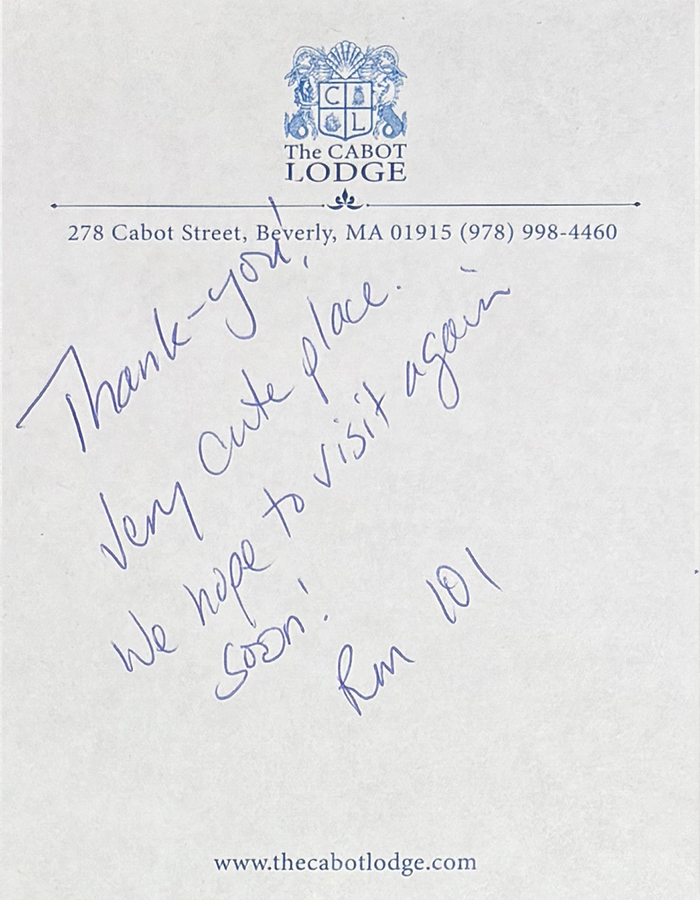 C
L
The CABOT
LODGE
278 Cabot Street, Beverly, MA 01915 (978) 998-4460
Thank-you!
Very cute place.
We hope to visit again
soon!
Rm 101
www.thecabotlodge.com